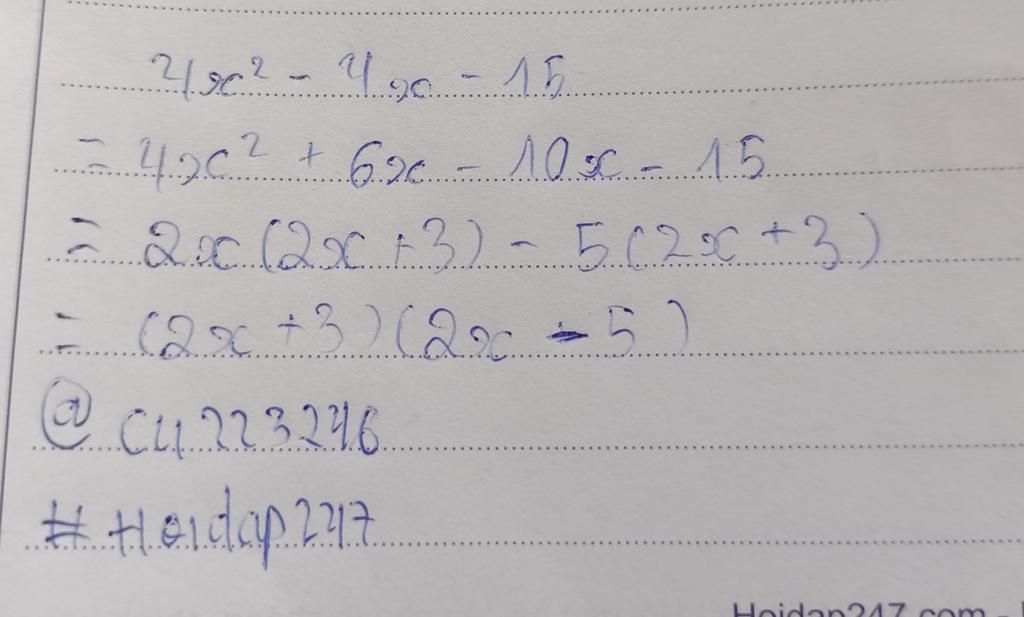 4x² - 4x - 15
= 4x² + 6x - 10x - 15
= 2x(2x+3) - 5(2x+3)
= (2x+3)(2x-5)
@cu223246
#Hoidap247
Hoidap247.com -